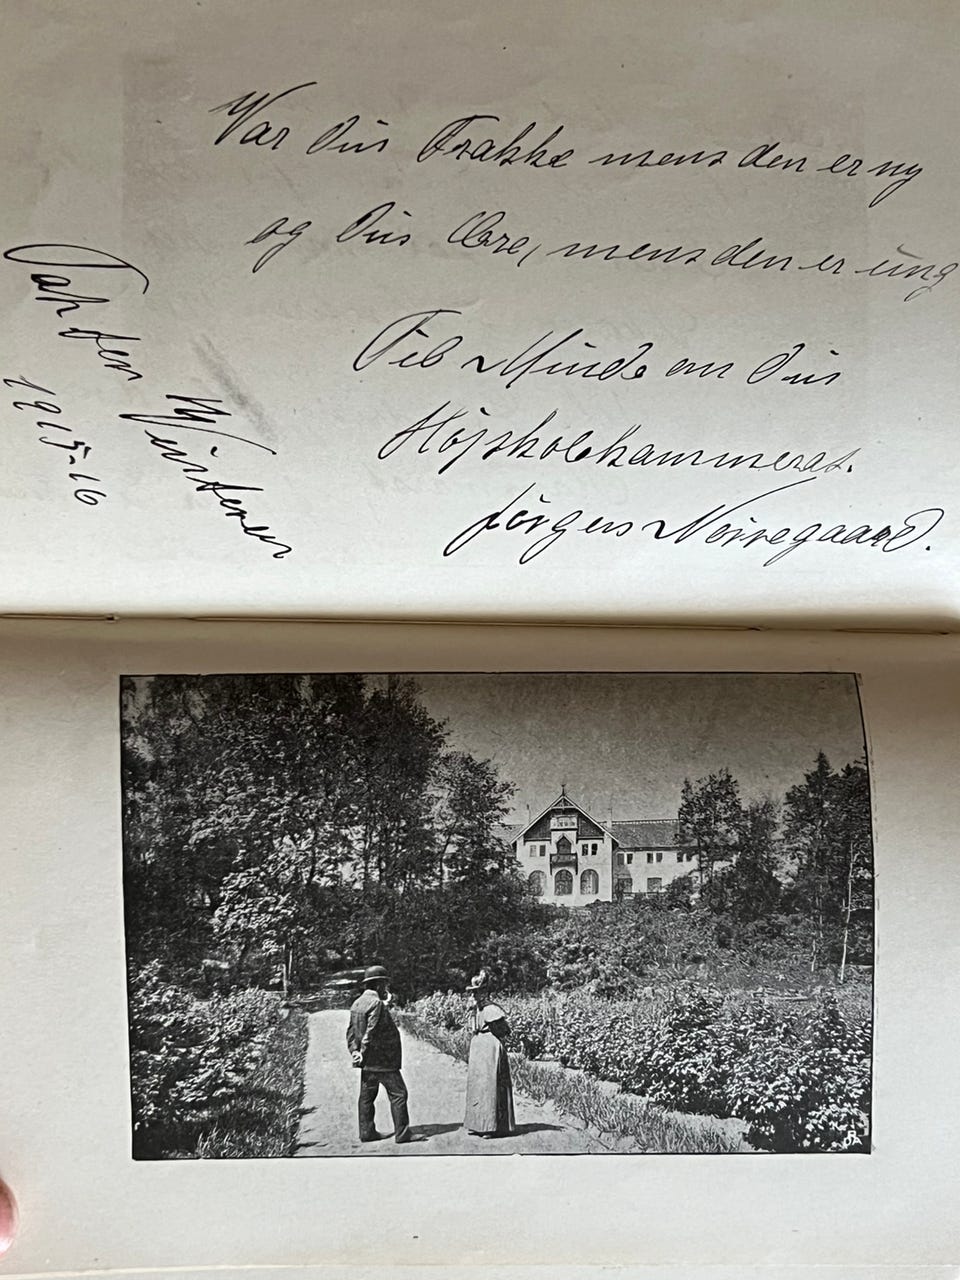 Var din Frakke mens den er ny
og din Ære, mens den er ung
Til Minde om din
Højskolekammerat.
Jörgen Nörregaard.
Tak for Vinteren
1915-16